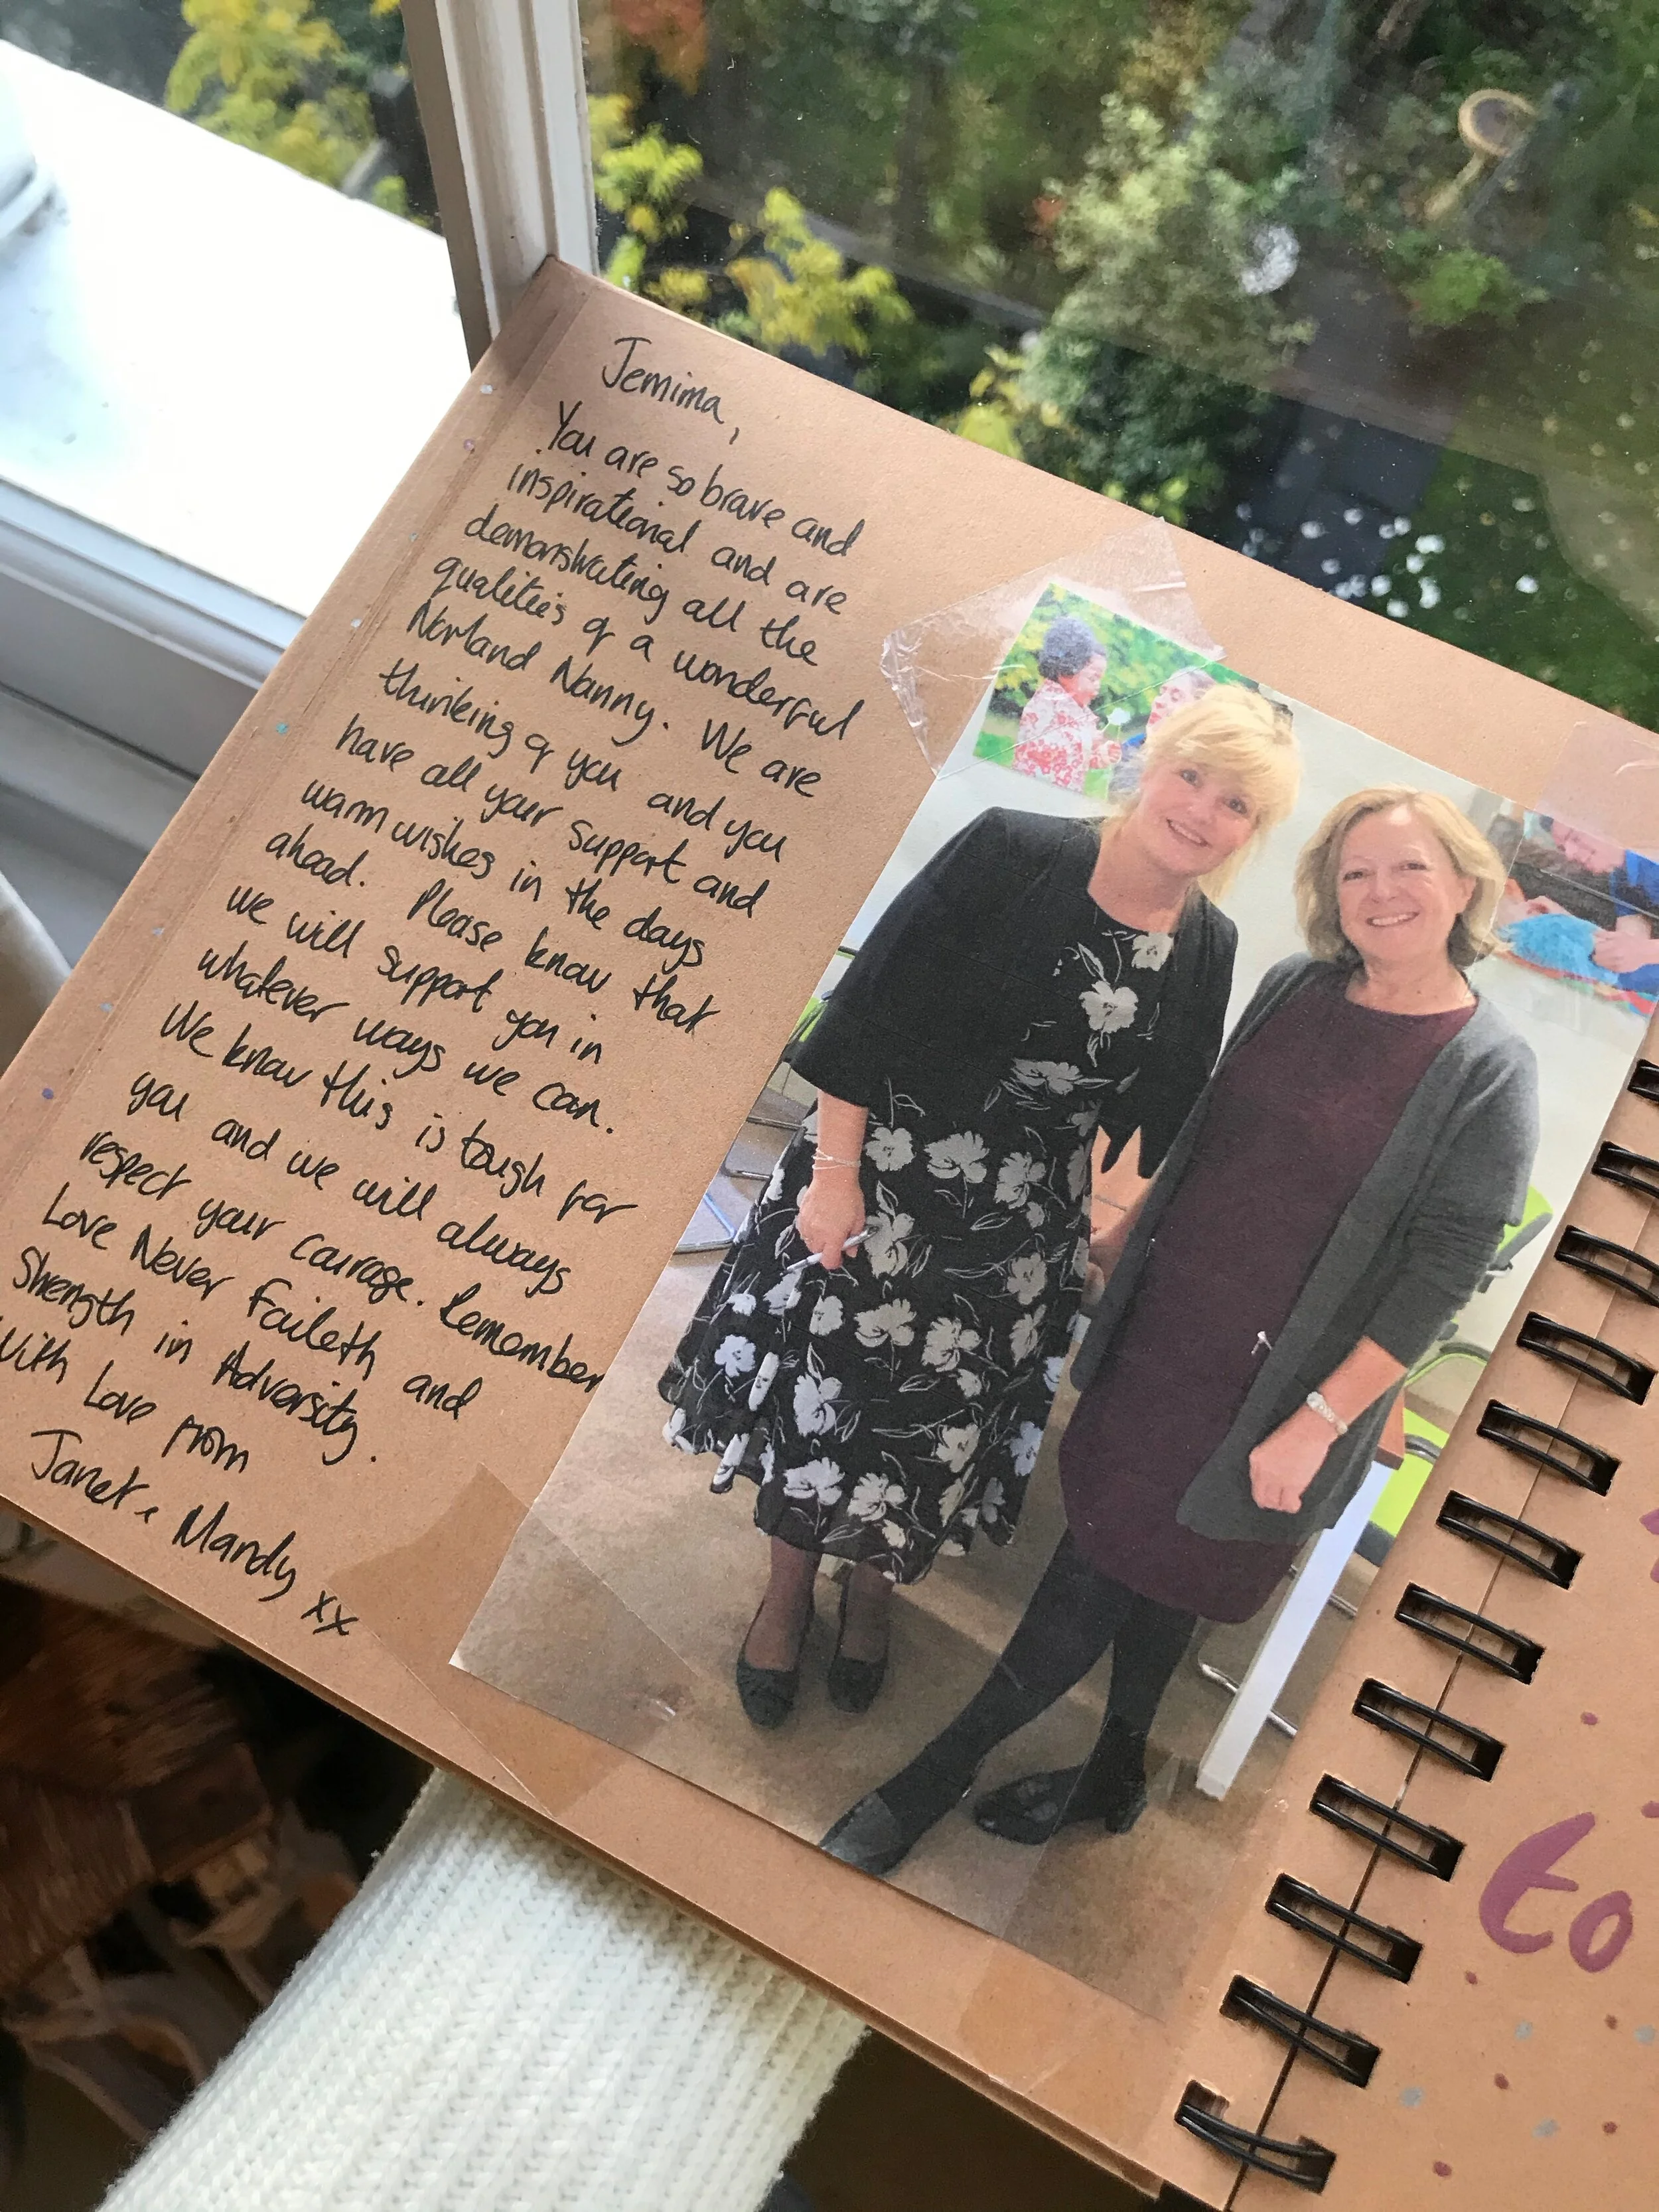 Jemima,
You are so brave and
inspirational and are
demonstrating all the
qualities of a wonderful
Norland Nanny. We are
thinking of you and you
have all your support and
warm wishes in the days
ahead. Please know that
we will support you in
whatever ways we can.
We know this is tough for
you and we will always
respect your courage. Remember
Love Never Faileth and
Strength in Adversity.
With Love from
Janet & Mandy xx
to